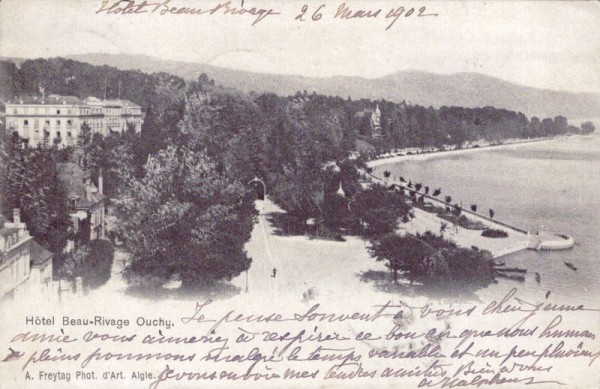 Hôtel Beau Rivage 26 Mars 1902
Hôtel Beau-Rivage Ouchy.
Je pense souvent à vous chère jeune
amie vous aimeriez à respirer ce bon air que nous humons
à pleins poumons malgré le temps variable et un peu pluvieux
A. Freytag Phot. d'Art. Aigle.
Je vous envoie mes tendres amitiés Bien à vous